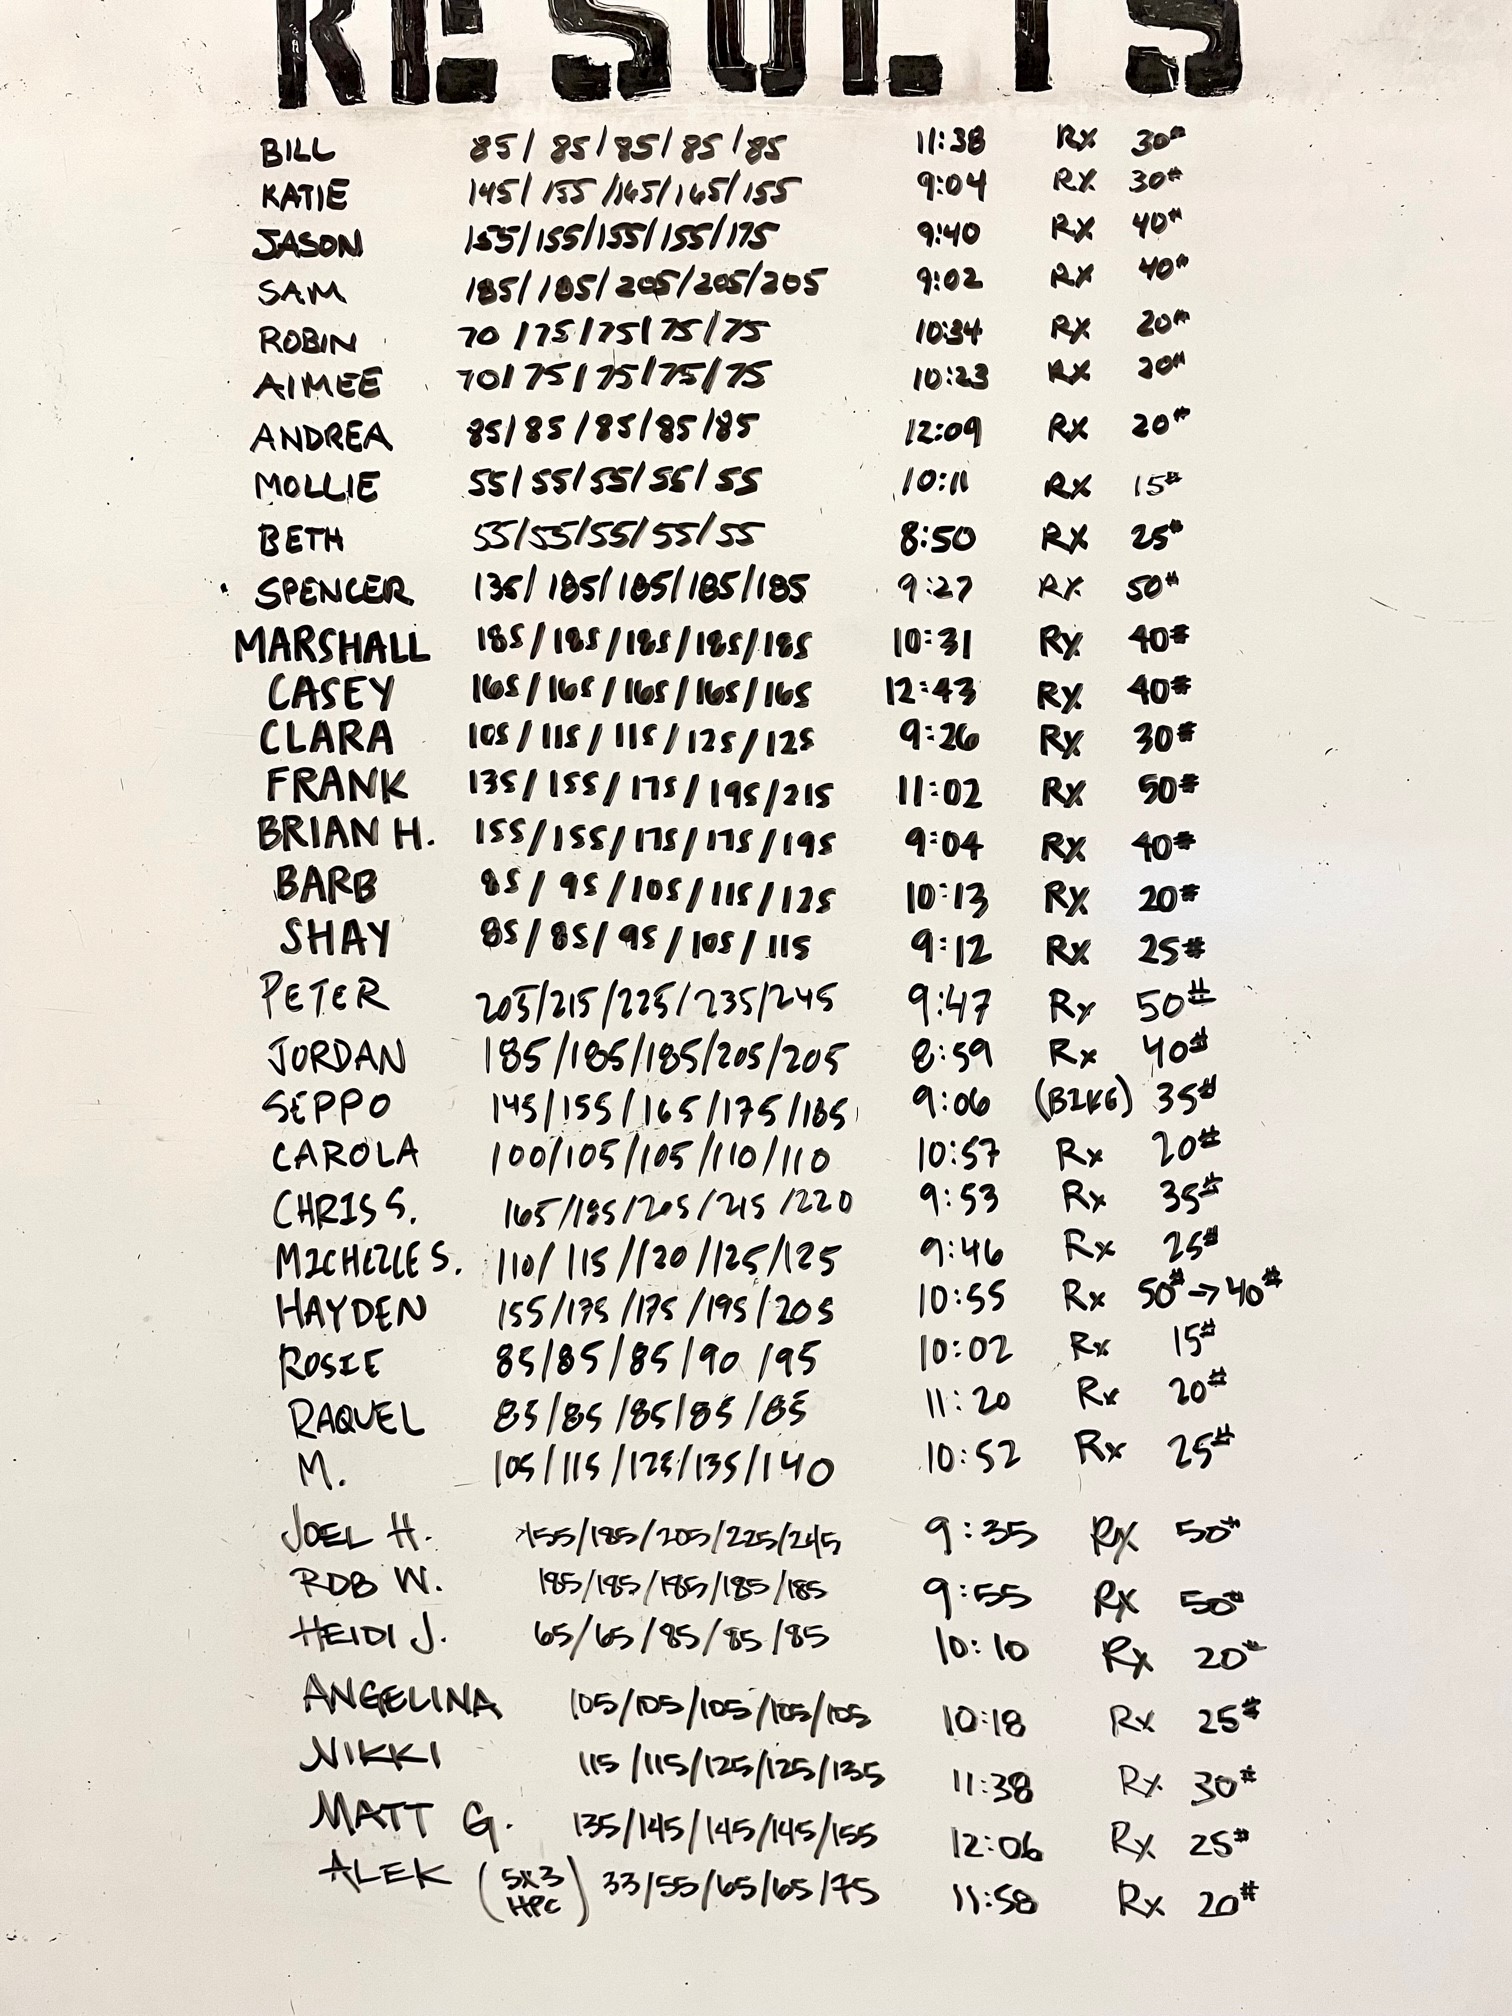 RESULTS
BILL 85/85/85/85/85 11:38 Rx 30#
KATIE 145/155/165/165/155 9:04 Rx 30#
JASON 155/155/155/155/175 9:40 Rx 40#
SAM 185/185/205/205/205 9:02 Rx 40#
ROBIN 70/75/75/75/75 10:34 Rx 20#
AIMEE 70/75/75/75/75 10:23 Rx 20#
ANDREA 85/85/85/85/85 12:09 Rx 20#
MOLLIE 55/55/55/55/55 10:11 Rx 15#
BETH 55/55/55/55/55 8:50 Rx 25#
SPENCER 135/185/185/185/185 9:27 Rx 50#
MARSHALL 185/185/185/185/185 10:31 Rx 40#
CASEY 165/165/165/165/165 12:43 Rx 40#
CLARA 105/115/115/125/125 9:26 Rx 30#
FRANK 135/155/175/195/215 11:02 Rx 50#
BRIAN H. 155/155/175/175/195 9:04 Rx 40#
BARB 85/95/105/115/125 10:13 Rx 20#
SHAY 85/85/95/105/115 9:12 Rx 25#
PETER 205/215/225/235/245 9:47 Rx 50#
JORDAN 185/185/185/205/205 8:59 Rx 40#
SEPPO 145/155/165/175/185 9:06 (BIKE) 35#
CAROLA 100/105/105/110/110 10:57 Rx 20#
CHRIS S. 165/185/205/215/220 9:53 Rx 35#
MICHELLE S. 110/115/120/125/125 9:46 Rx 25#
HAYDEN 155/175/175/195/205 10:55 Rx 50#→40#
ROSIE 85/85/85/90/95 10:02 Rx 15#
RAQUEL 85/85/85/85/85 11:20 Rx 20#
M. 105/115/125/135/140 10:52 Rx 25#
JOEL H. 155/185/205/225/245 9:35 Rx 50#
ROB W. 185/185/185/185/185 9:55 Rx 50#
HEIDI J. 65/65/85/85/85 10:10 Rx 20#
ANGELINA 105/105/105/105/105 10:18 Rx 25#
NIKKI 115/115/125/125/135 11:38 Rx 30#
MATT G. 135/145/145/145/155 12:06 Rx 25#
ALEK (5X3 HPC) 33/55/65/65/75 11:58 Rx 20#